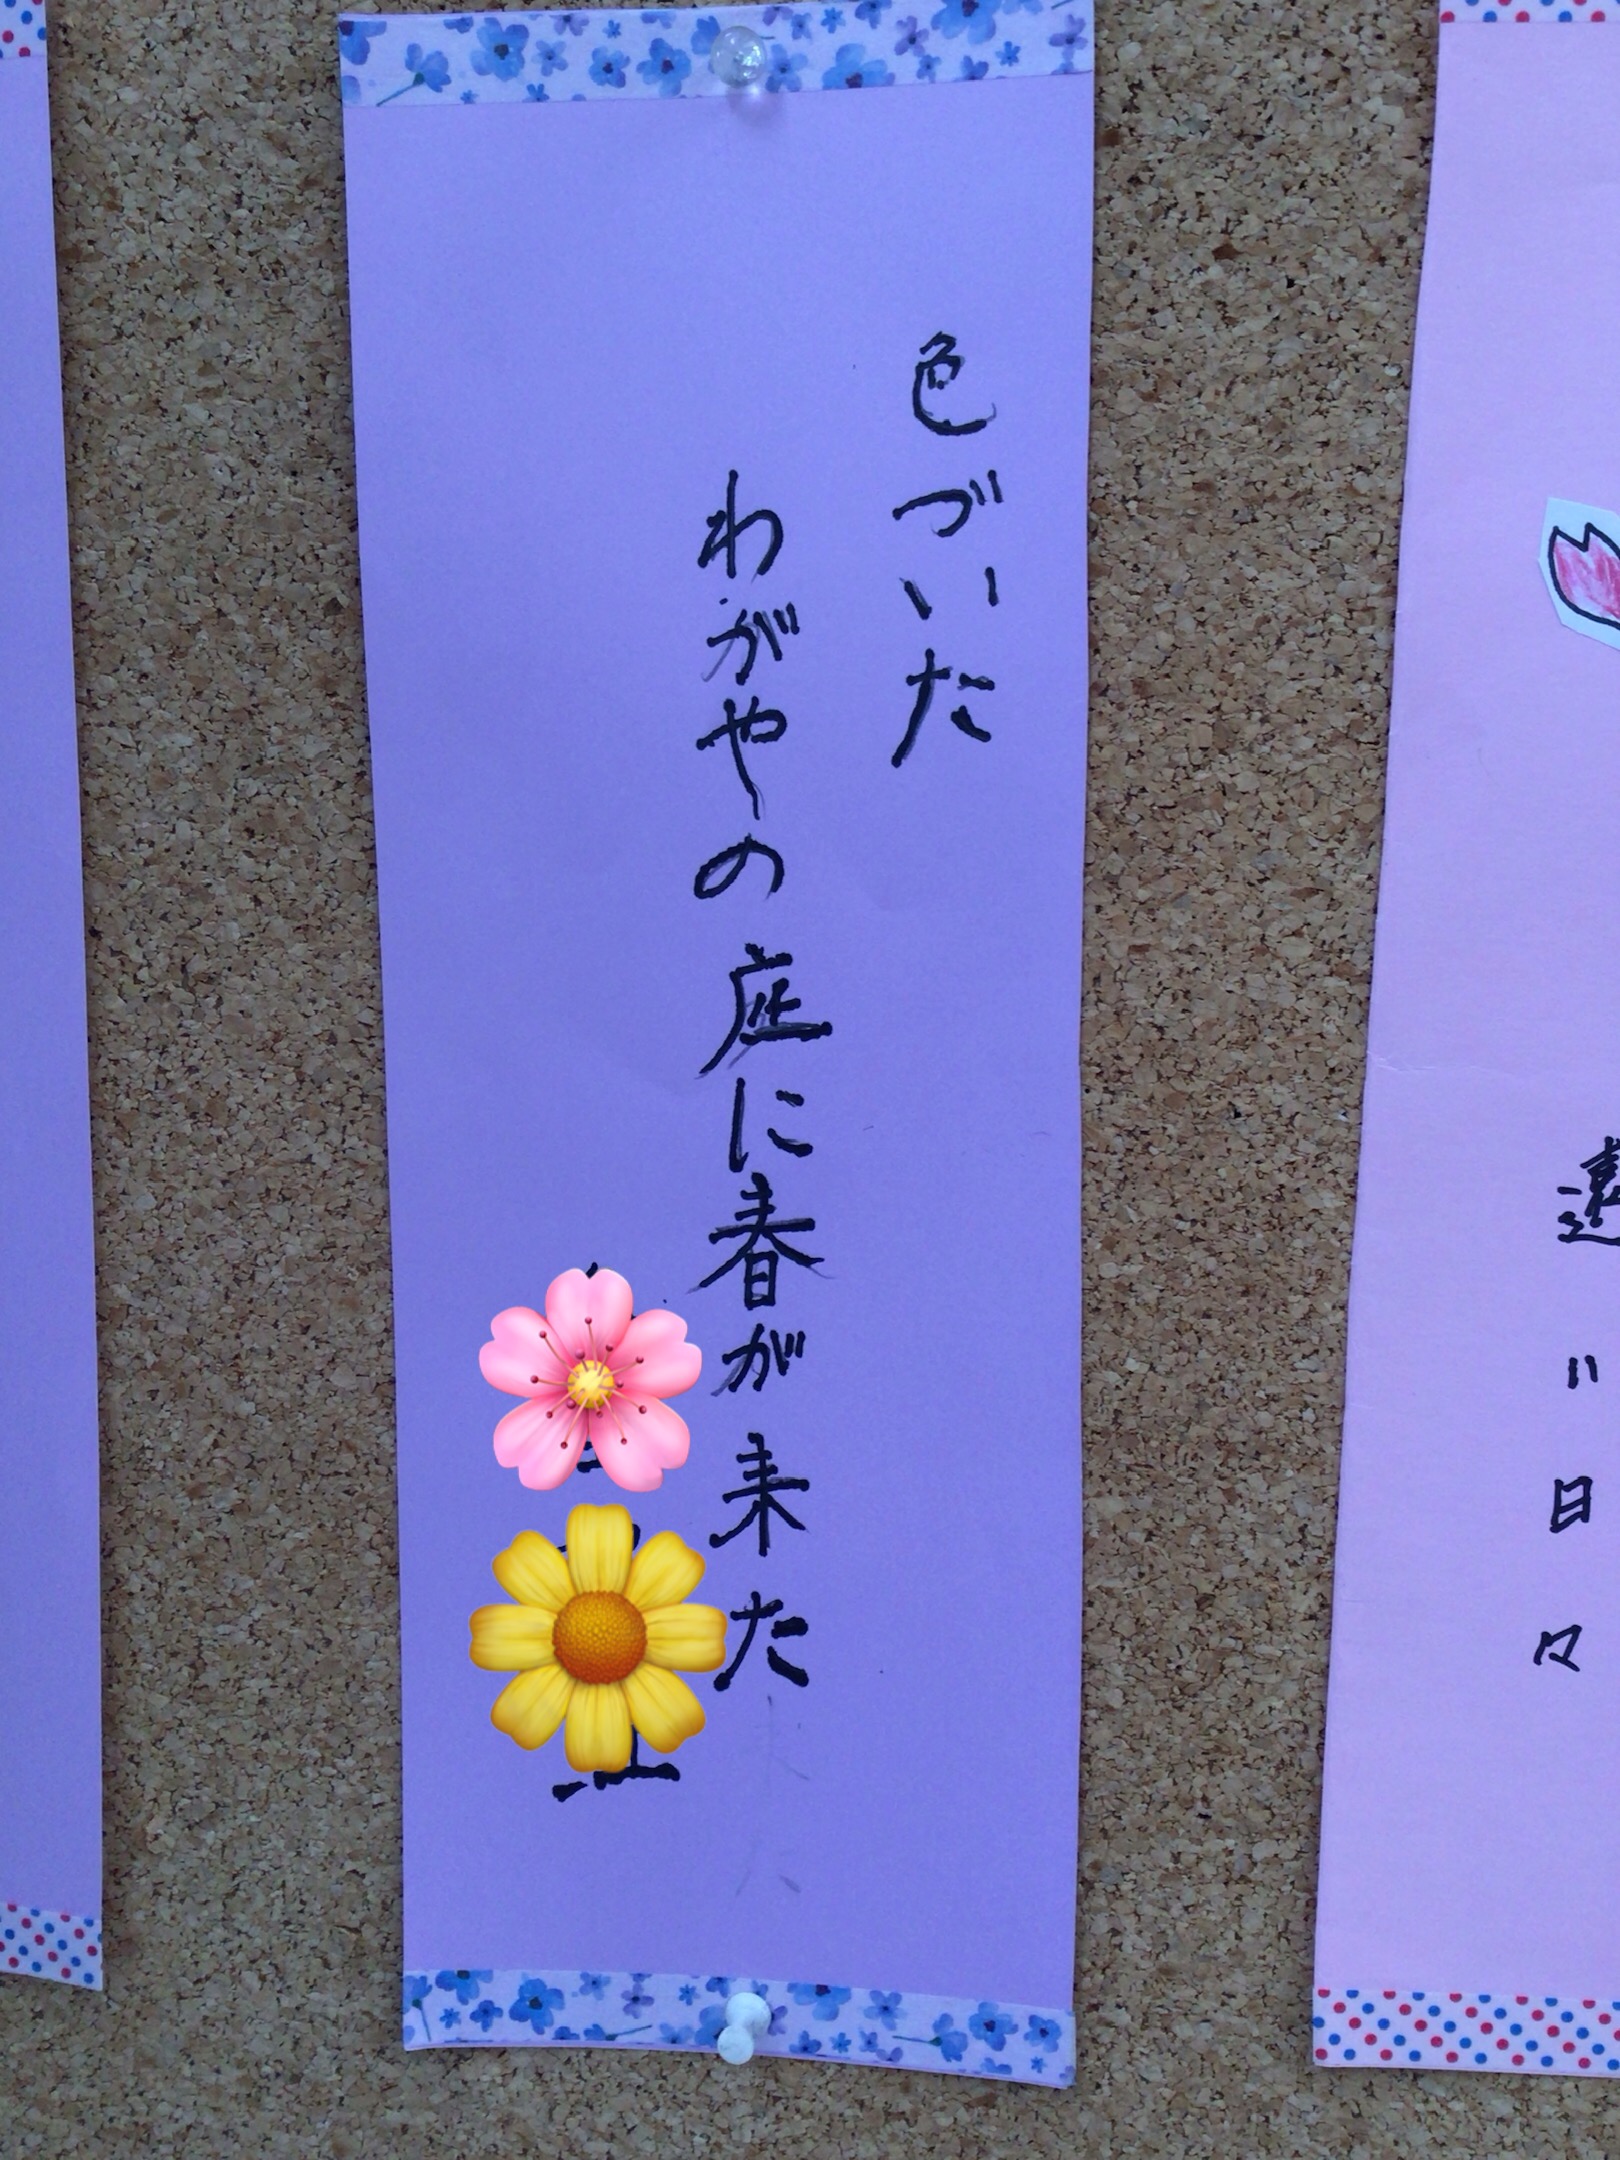 色づいた
わがやの庭に春が来た
日々